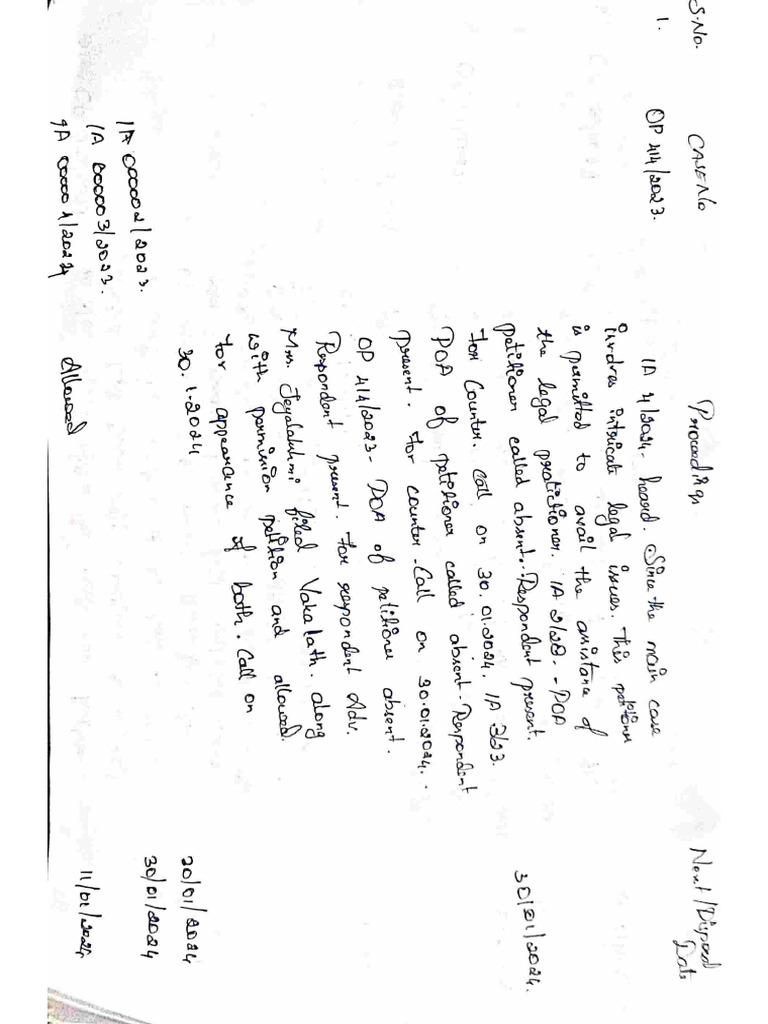 S.No. CASE No Proceedings Next/Disposal Date
1. OP 414/2023. 30/01/2024.
IA 4/2024. heard. Since the main case
involves intricate legal issues. This petitioner
is permitted to avail the assistance of
the legal practitioner. IA 2/23. - POA
Petitioner called absent. Respondent present.
For Counter. Call on 30.01.2024. IA 3/23.
POA of petitioner called absent. Respondent
present. For counter. Call on 30.01.2024.
OP 414/2023- POA of petitioner absent.
Respondent present. For respondent Adv.
Mrs. Jeyalakshmi filed Vakalath. along
with permission petition and allowed.
for appearance of both. Call on
30.1.2024
IA 000002/2023. 20/01/2024
IA 000003/2023. 30/01/2024
IA 000004/2024 Allowed 11/01/2024